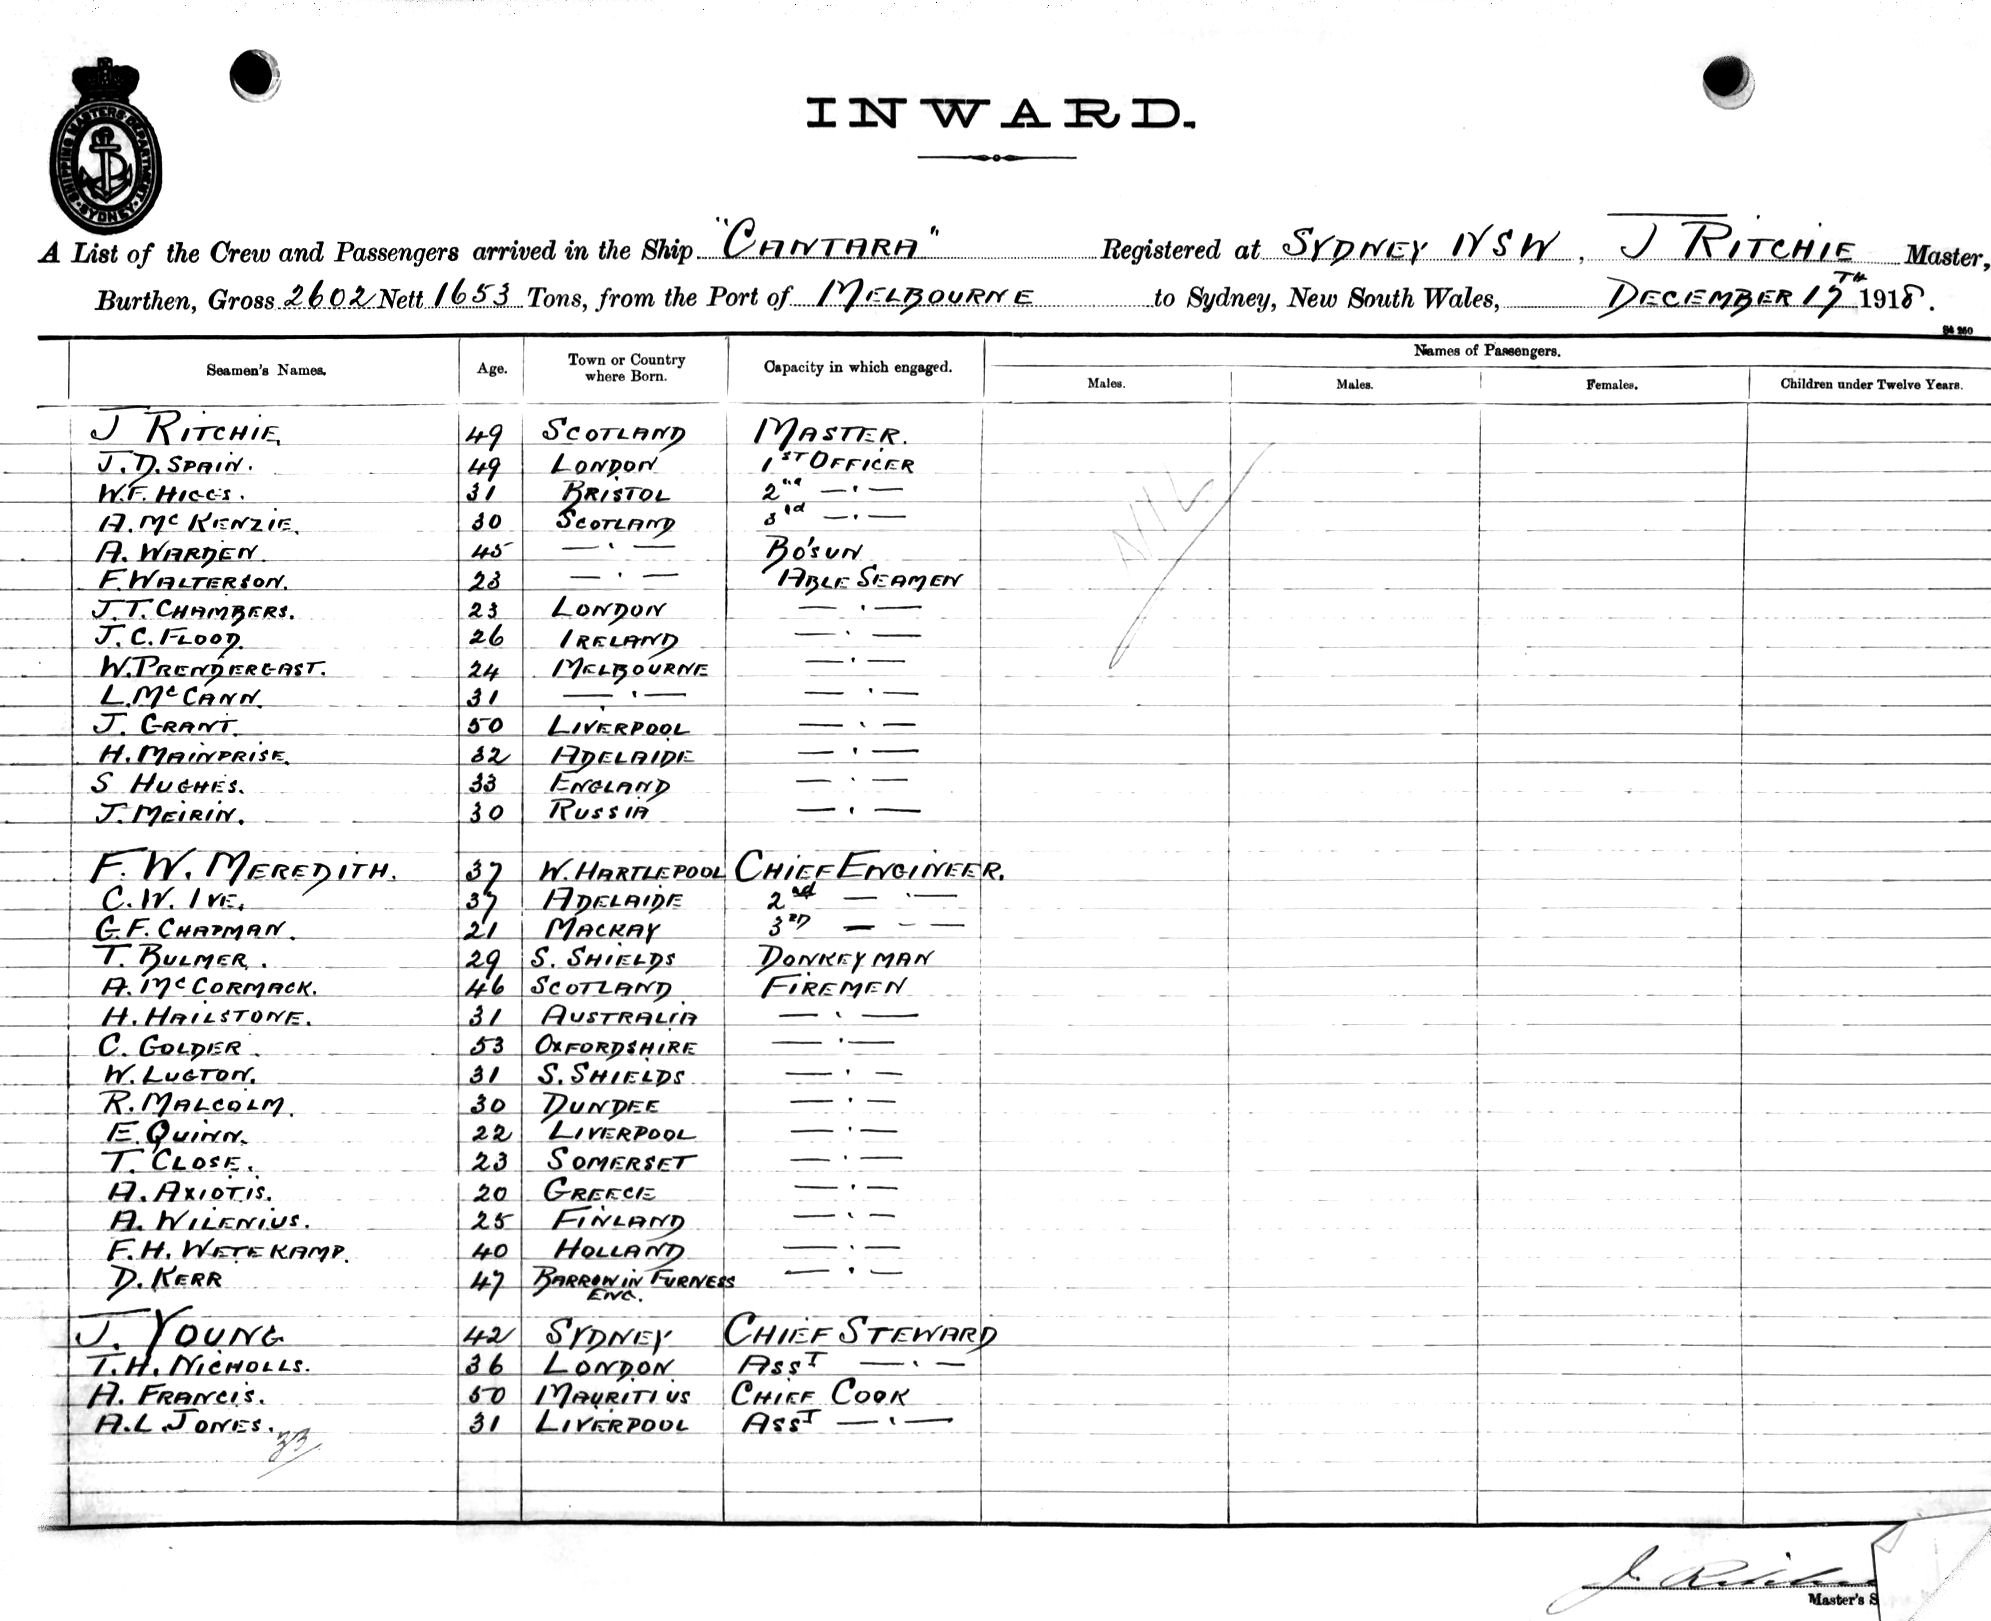 SHIPPING MASTERS DEPARTMENT
SYDNEY
INWARD.
A List of the Crew and Passengers arrived in the Ship "CANTARA" Registered at SYDNEY NSW, J RITCHIE Master,
Burthen, Gross 2602 Nett 1653 Tons, from the Port of MELBOURNE to Sydney, New South Wales, DECEMBER 17TH 1918.
Seamen's Names. Age. Town or Country where Born. Capacity in which engaged. Names of Passengers.
Males. Males. Females. Children under Twelve Years.
NIL
J RITCHIE 49 SCOTLAND MASTER.
J. D. SPAIN. 49 LONDON 1ST OFFICER
W. F. HIGGS. 31 BRISTOL 2nd — " —
A. McKENZIE. 30 SCOTLAND 3rd — " —
A. WARDEN 45 — " — BO'SUN
F. WALTERSON. 23 — " — ABLE SEAMEN
J. T. CHAMBERS. 23 LONDON — " —
J. C. FLOOD. 26 IRELAND — " —
W. PRENDERGAST. 24 MELBOURNE — " —
L. McCANN. 31 — " — — " —
J. GRANT. 50 LIVERPOOL — " —
H. MAINPRISE. 32 ADELAIDE — " —
S HUGHES. 33 ENGLAND — " —
J. MEIRIN. 30 RUSSIA — " —
F. W. MEREDITH. 37 W. HARTLEPOOL CHIEF ENGINEER.
C. W. IVE. 37 ADELAIDE 2nd — " —
G. F. CHAPMAN. 21 MACKAY 3RD — - —
T. BULMER. 29 S. SHIELDS DONKEYMAN
A. McCORMACK. 46 SCOTLAND FIREMEN
H. HAILSTONE. 31 AUSTRALIA — " —
C. GOLDER. 53 OXFORDSHIRE — " —
W. LUGTON. 31 S. SHIELDS — " —
R. MALCOLM. 30 DUNDEE — " —
E. QUINN. 22 LIVERPOOL — " —
T. CLOSE. 23 SOMERSET — " —
A. AXIOTIS. 20 GREECE — " —
A. WILENIUS. 25 FINLAND — " —
F. H. WETEKAMP. 40 HOLLAND — " —
D. KERR 47 BARROW IN FURNESS ENG. — " —
J. YOUNG 42 SYDNEY CHIEF STEWARD
T. H. NICHOLLS. 36 LONDON ASST — " —
A. FRANCIS. 50 MAURITIUS CHIEF COOK
A. L JONES. 31 LIVERPOOL ASST — " —
33
J. Ritchie
Master's S